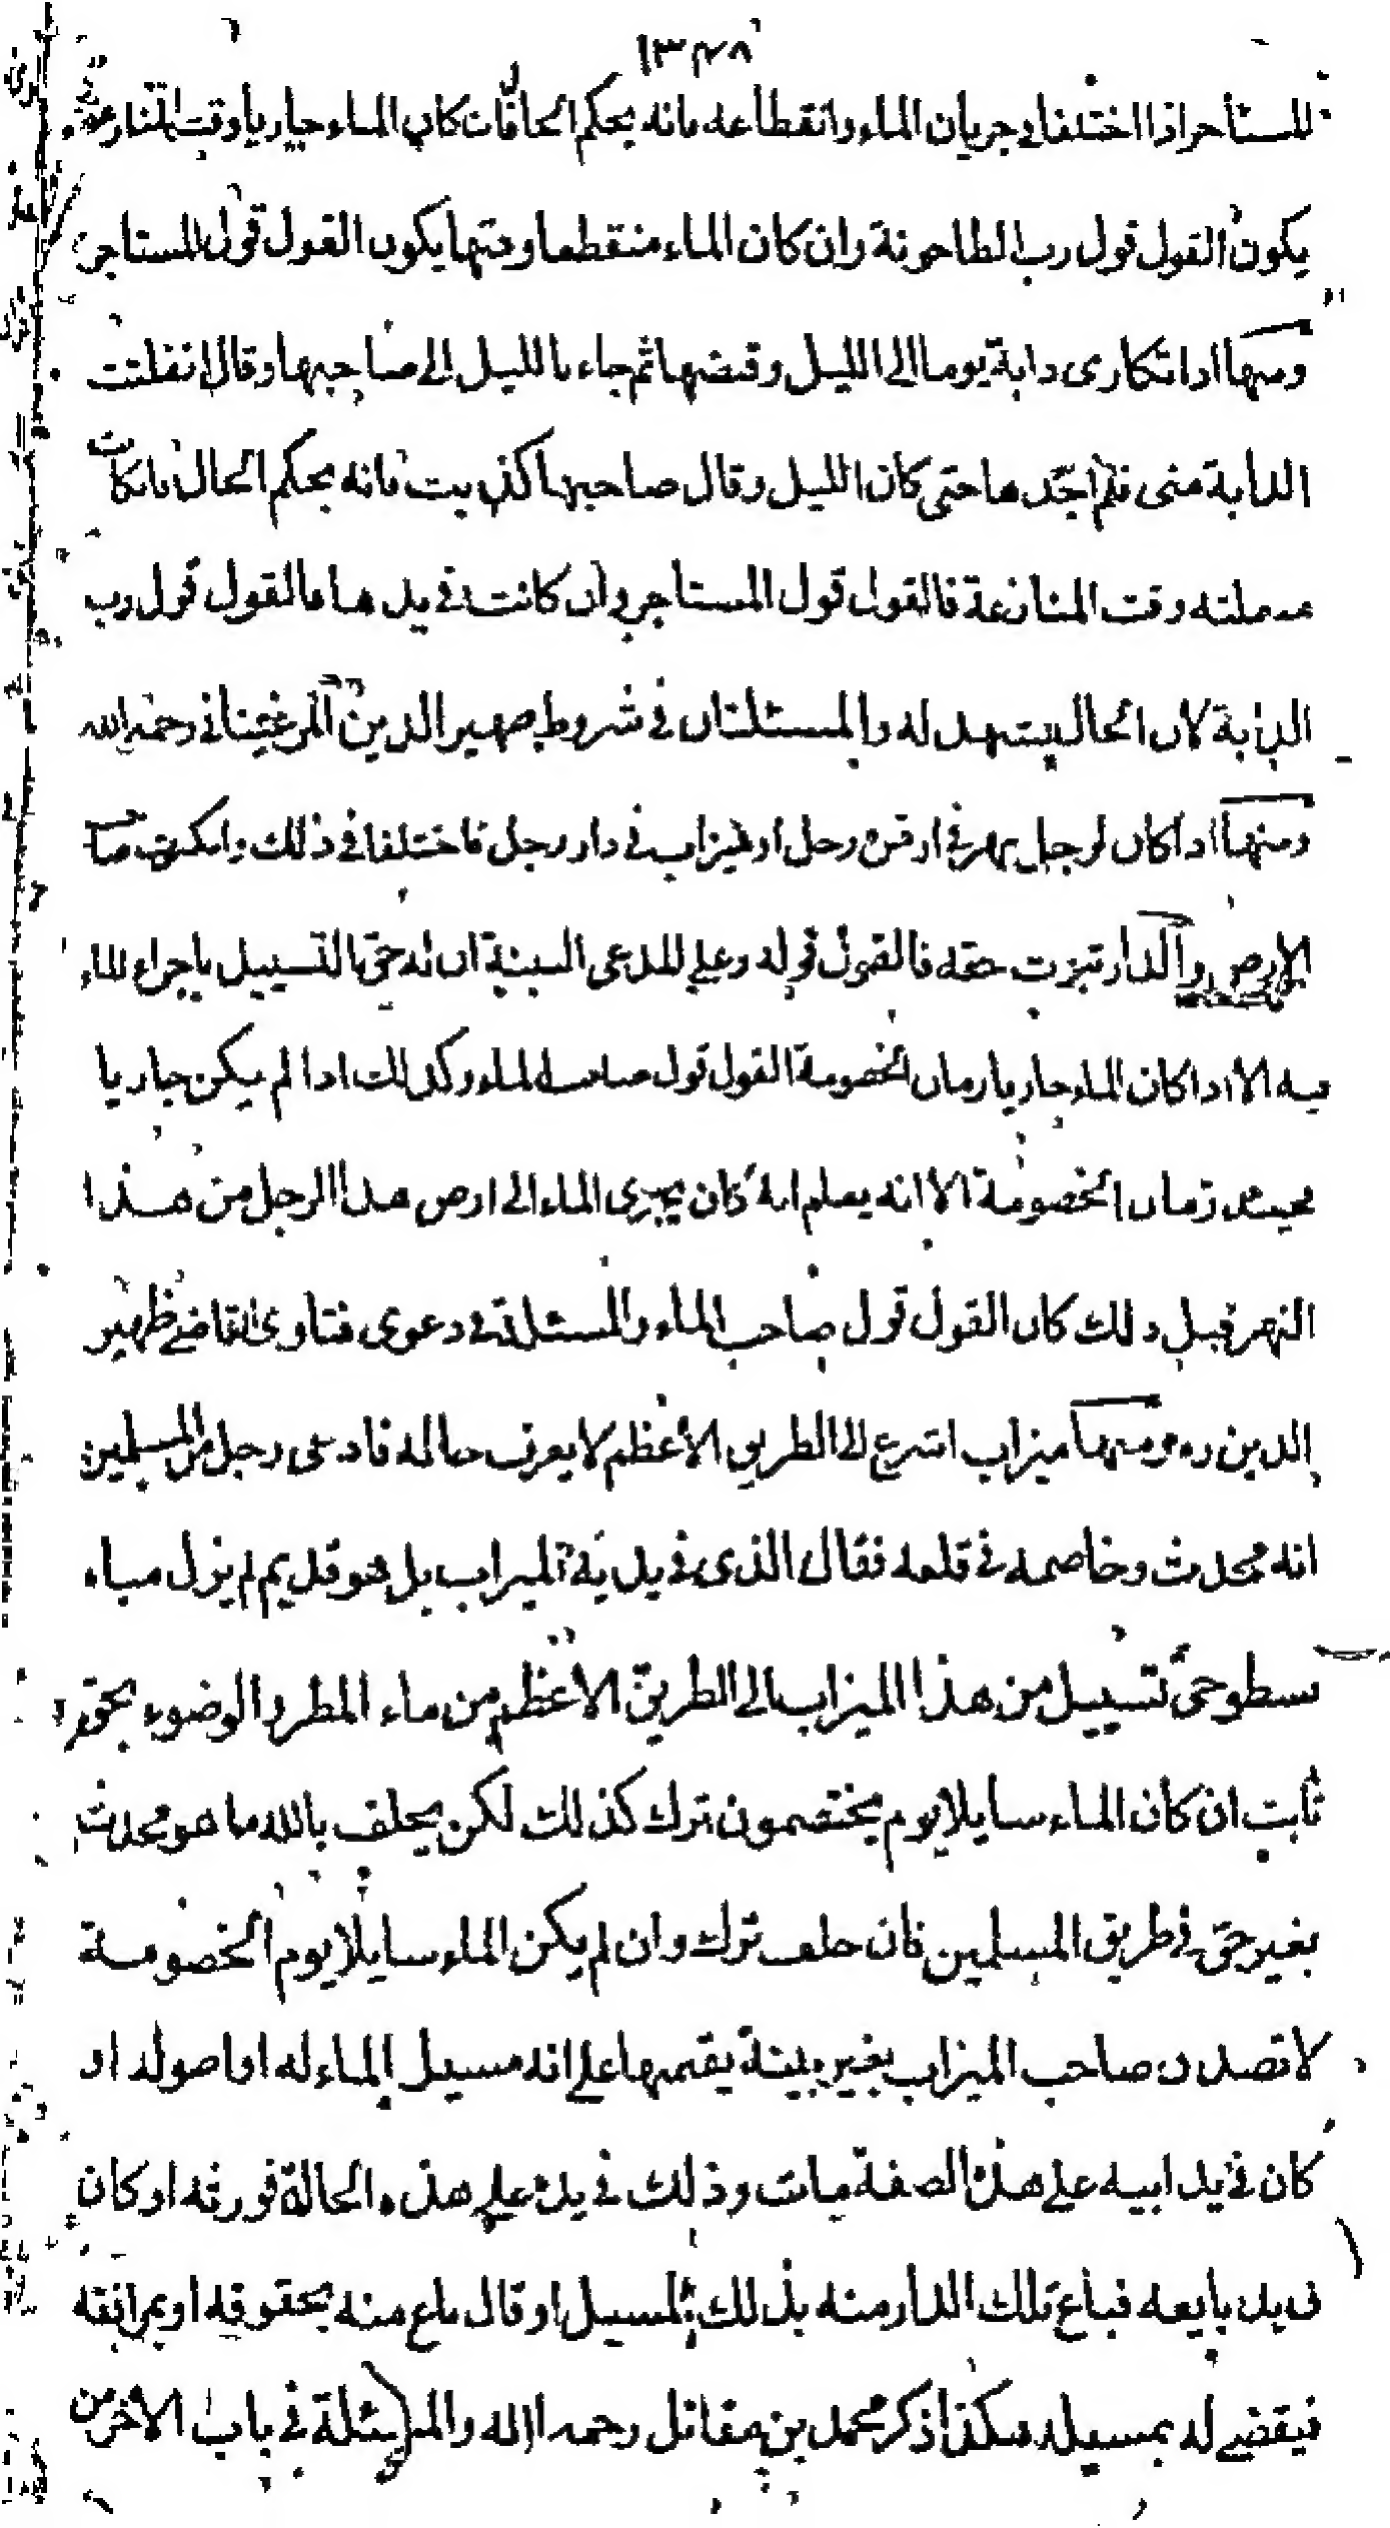 ١٣٤٨
للمستأجر اذا اختلفا في جريان الماء وانقطاعه فانه يحكم الحال فان كان الماء جاريا وقت المنازعة
يكون القول قول رب الطاحونة وان كان الماء منقطعا وقتها يكون القول قول المستاجر
ومنها اذا تكارى دابة يوما الى الليل وقبضها ثم جاء بالليل الى صاحبها وقال انفلتت
الدابة منى فلم اجدها حتى كان الليل وقال صاحبها كذبت فانه يحكم الحال فان كانت
منفلتة وقت المنازعة فالقول قول المستاجر وان كانت في يدها فالقول قول رب
الدابة لان الحال يشهد له والمسئلتان في شروط ظهير الدين المرغيناني رحمه الله
ومنها اذا كان لرجل نهر في ارض رجل او ميزاب في دار رجل فاختلفا في ذلك وانكر صاحب
الارض والدار حقه فالقول قوله وعلى المدعى البينة ان له حق التسييل باجراء الماء
فيه الا اذا كان الماء جاريا زمان الخصومة القول قول صاحب الماء وكذلك اذا لم يكن جاريا
زمان الخصومة الا انه يعلم انه كان يجرى الماء الى ارض هذا الرجل من هذا
النهر قبل ذلك كان القول قول صاحب الماء والمسئلة في دعوى فتاوى القاضي ظهير
الدين ره ومنها ميزاب اشرع الى الطريق الاعظم لا يعرف حاله فادعى رجل من المسلمين
انه محدث وخاصمه في قلعه فقال الذى في يديه الميزاب بل هو قديم لم يزل مياه
سطوحى تسييل من هذا الميزاب الى الطريق الاعظم من ماء المطر والوضوء بحق
ثابت ان كان الماء سايلا يوم يختصمون ترك كذلك لكن يحلف بالله ما هو محدث
بغير حق في طريق المسلمين فان حلف ترك وان لم يكن الماء سايلا يوم الخصومة
لا تصدق صاحب الميزاب بغير بينة يقيمها على انه مسيل الماء له او اصوله او
كان في يد ابيه على هذه الصفة مات وذلك في يده على هذه الحالة فورثه او كان
في يد بايعه فباع تلك الدار منه بذلك المسيل او قال باع منه بحقوقه او بمرافقه
فيقضى له بمسيله هكذا ذكر محمد بن مقاتل رحمه الله والمسئلة في باب الاخر من